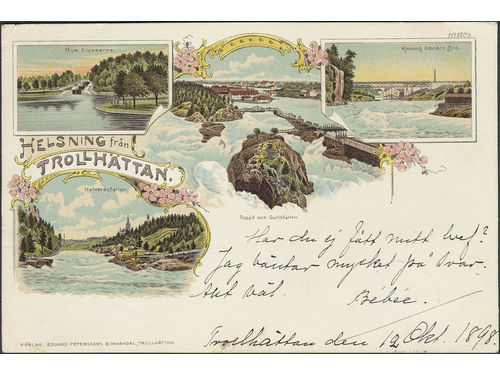 Nº 1209.
Nya Slussarne.
Konung Oscars Bro.
HELSNING från
TROLLHÄTTAN.
Helvetesfallen.
Toppö och Gullöfallen.
Har du ej fått mitt bref?
Jag väntar mycket på svar.
Allt väl. Bébée.
Trollhättan den 12 Okt. 1898.
FÖRLAG: EDUARD PETERSSONS BOKHANDEL, TROLLHÄTTAN.